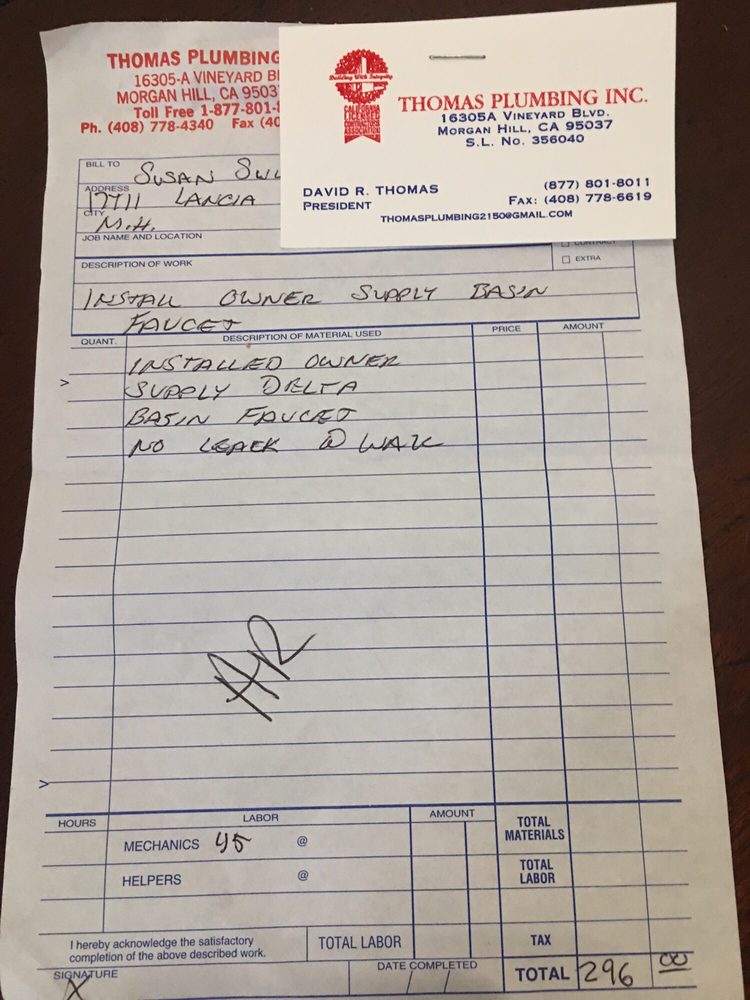 THOMAS PLUMBING
16305-A VINEYARD BL
MORGAN HILL, CA 9503
Toll Free 1-877-801-
Ph. (408) 778-4340 Fax (40
Building With Integrity
CALIFORNIA
LICENSED
CONTRACTORS
ASSOCIATION
THOMAS PLUMBING INC.
16305A VINEYARD BLVD.
MORGAN HILL, CA 95037
S.L. No. 356040
DAVID R. THOMAS
PRESIDENT
(877) 801-8011
FAX: (408) 778-6619
THOMASPLUMBING2150@GMAIL.COM
BILL TO SUSAN
ADDRESS 17711 LANCIA
CITY M.H.
JOB NAME AND LOCATION
CONTRACT
EXTRA
DESCRIPTION OF WORK
INSTALL OWNER SUPPLY BASIN
FAUCET
QUANT. DESCRIPTION OF MATERIAL USED PRICE AMOUNT
INSTALLED OWNER
SUPPLY DELTA
BASIN FAUCET
NO LEAK @
AR
HOURS LABOR AMOUNT TOTAL MATERIALS
MECHANICS 45 @
HELPERS @ TOTAL LABOR
I hereby acknowledge the satisfactory
completion of the above described work.
TOTAL LABOR TAX
SIGNATURE X DATE COMPLETED / / TOTAL 296 00